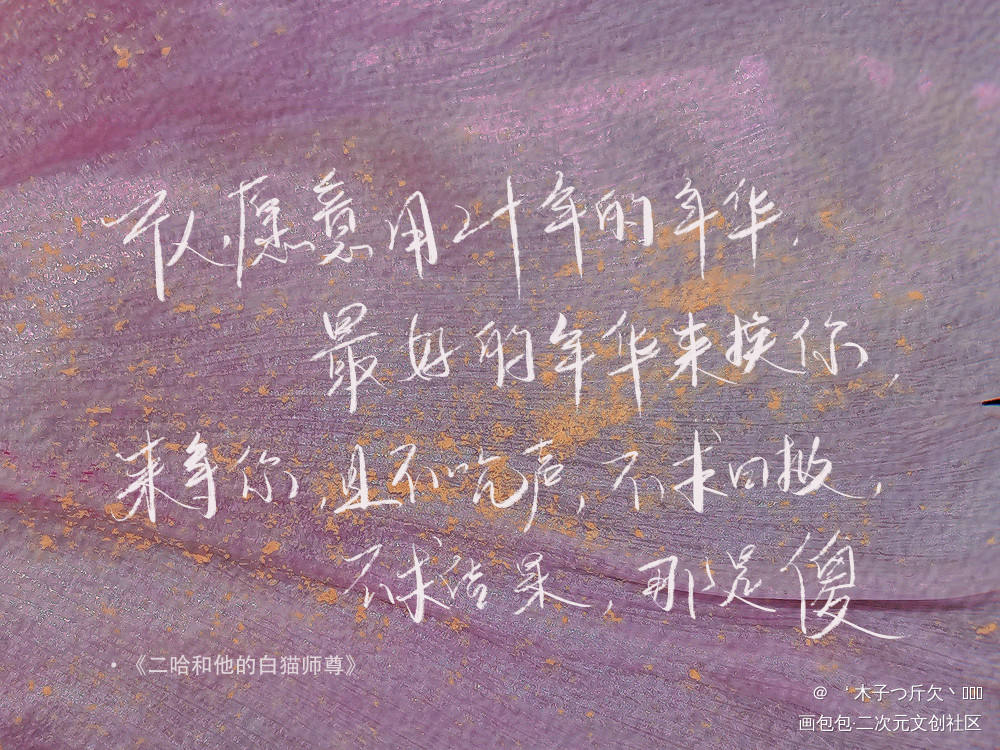 不仅愿意用二十年的年华,
最好的年华来换你,
来争你,且不吭声,不求回报,
不求结果,那是傻
·《二哈和他的白猫师尊》
@ ‘ 木子つ斤欠丶
画包包·二次元文创社区